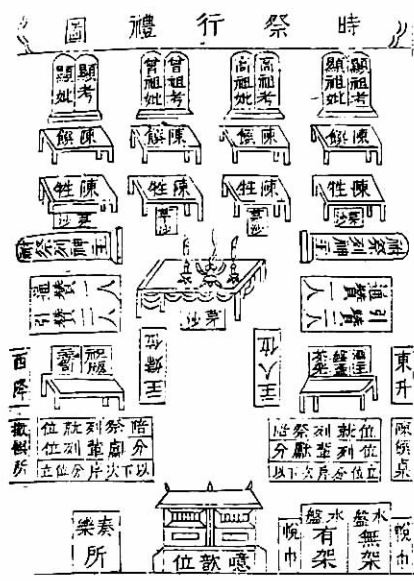 時祭行禮圖
顯祖考
顯祖妣
高祖考
高祖妣
曾祖考
曾祖妣
顯考
顯妣
陳饌
陳饌
陳饌
陳饌
陳牲
陳牲
陳牲
陳牲
茅沙
茅沙
茅沙
茅沙
祔祭列神主
祔祭列神主
茅沙
通贊一人
引贊二人
通贊一人
引贊二人
主人位
主婦位
東升
西降
祝版
陪祭列就位
分獻輩列位
以下次序分位立
陪祭列就位
分獻輩列位
以下次序分位立
陳饌桌
徹饌所
噫歆位
奏樂所
水盤無架
水盤有架
帨巾
帨巾